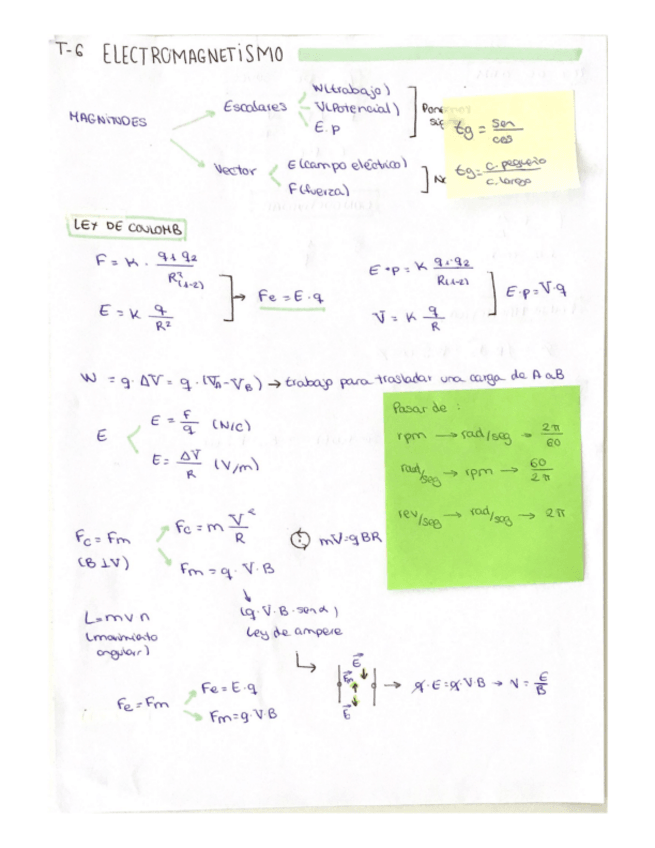 T-6 ELECTROMAGNETISMO
MAGNITUDES
Escalares
W(trabajo)
V(Potencial)
E.p
Vector
E(campo eléctrico)
F(fuerza)
tg = sen/cos
tg = c. pequeño/c. largo
LEY DE COULOMB
F = K · q1 q2/R²(1-2)
E = K q/R²
Fe = E·q
E·p = K q1·q2/R(1-2)
V = K q/R
E·p = V·q
W = q·ΔV = q·(VA-VB) → trabajo para trasladar una carga de A a B
E
E = F/q (N/C)
E = ΔV/R (V/m)
Pasar de :
rpm → rad/seg → 2π/60
rad/seg → rpm → 60/2π
rev/seg → rad/seg → 2π
Fc = Fm
(B⊥V)
Fc = m V²/R
Fm = q·V·B
mV=qBR
(q·V·B·senα)
Ley de ampere
L=mvn
(movimiento
angular)
Fe=Fm
Fe=E·q
Fm=q·V·B
→ q·E=q·V·B → V = E/B